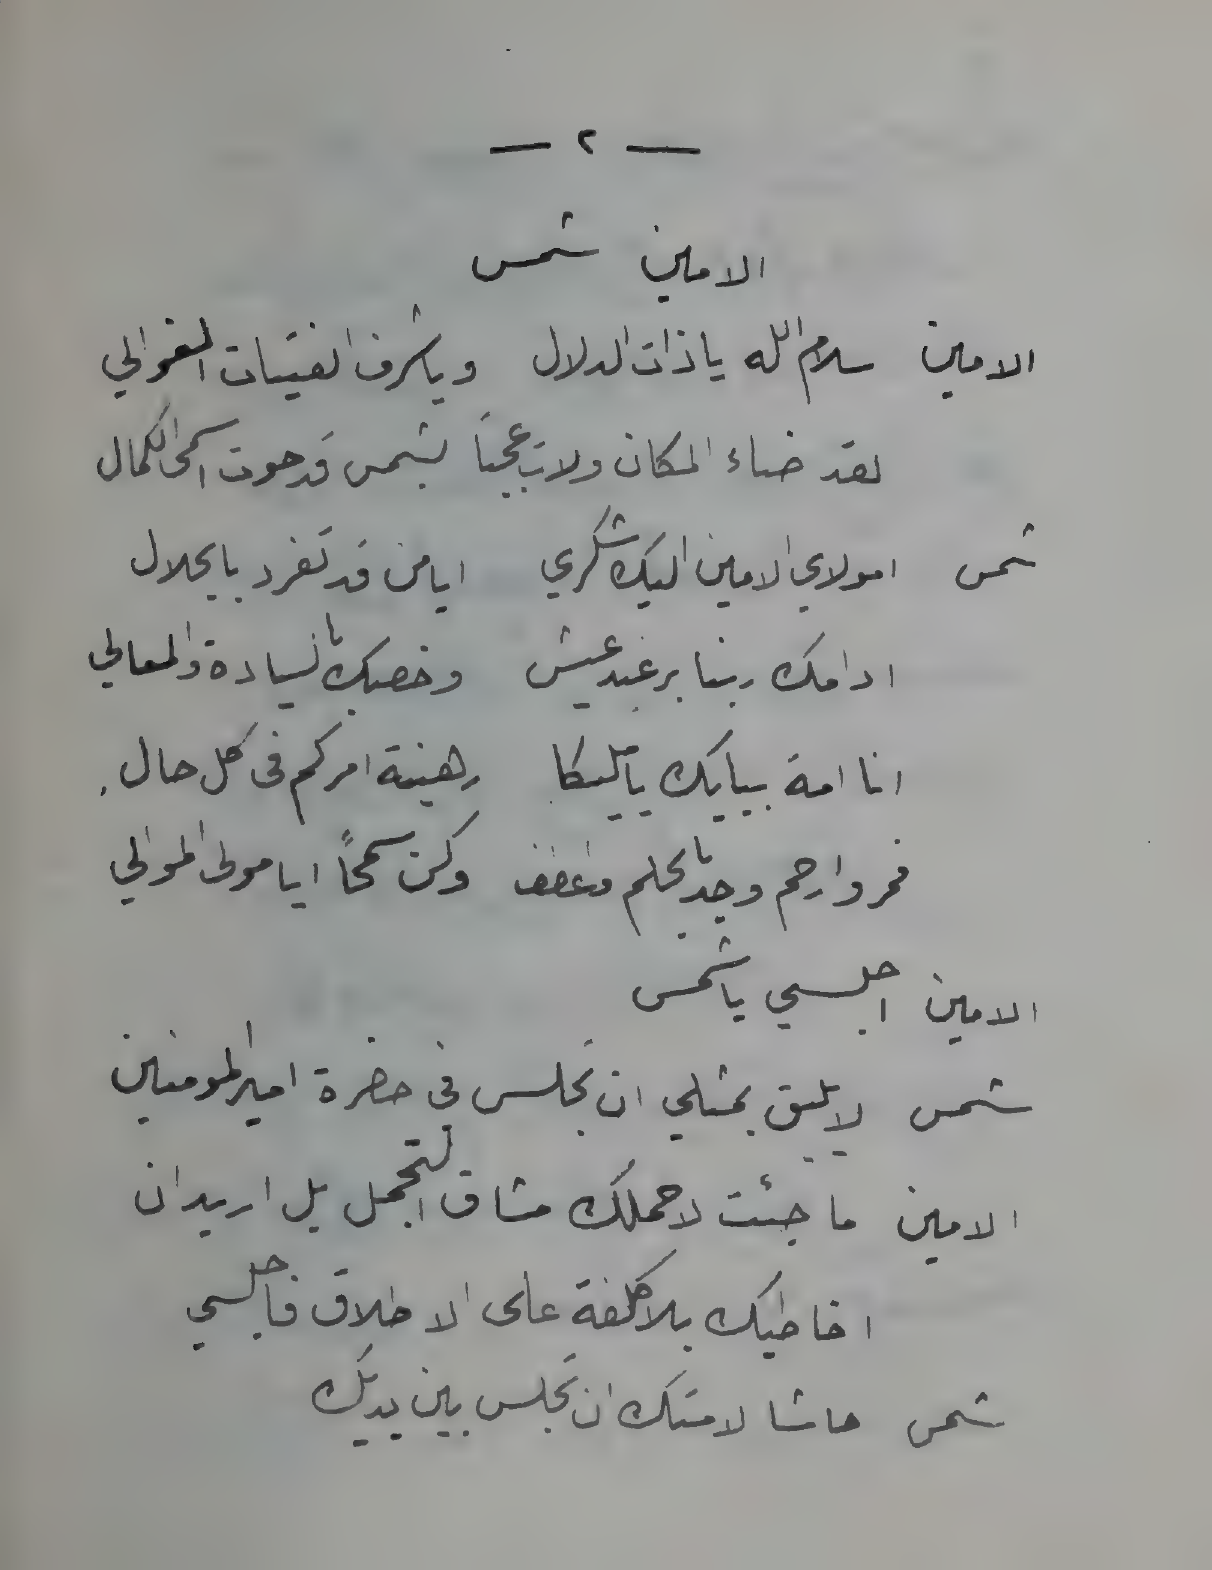 — ٢ —
الامين شمس
الامين سلام الله يا ذات الدلال ويا شرف الفتيات الغوالي
لقد ضاء المكان ولا عجباً بشمس قد حوت اسمى الكمال
شمس امولاي الامين اليك شكري ايا من قد تفرد بالجلال
ادامك ربنا برغيد عيش وخصك بالسيادة والمعالي
انا امة ببابك يا مليكا رهينة امركم في كل حال .
فمر وارحم وجد بالحلم وكن سمحاً ايا مولى الموالي
الامين اجلسي يا شمس
شمس لا يليق بمثلي ان تجلس في حضرة امير المومنين
الامين ما جئت لاحملك مشاق التجمل بل اريد ان
اخاطبك بلا كلفة على الاطلاق فاجلسي
شمس حاشا لامتك ان تجلس بين يديك